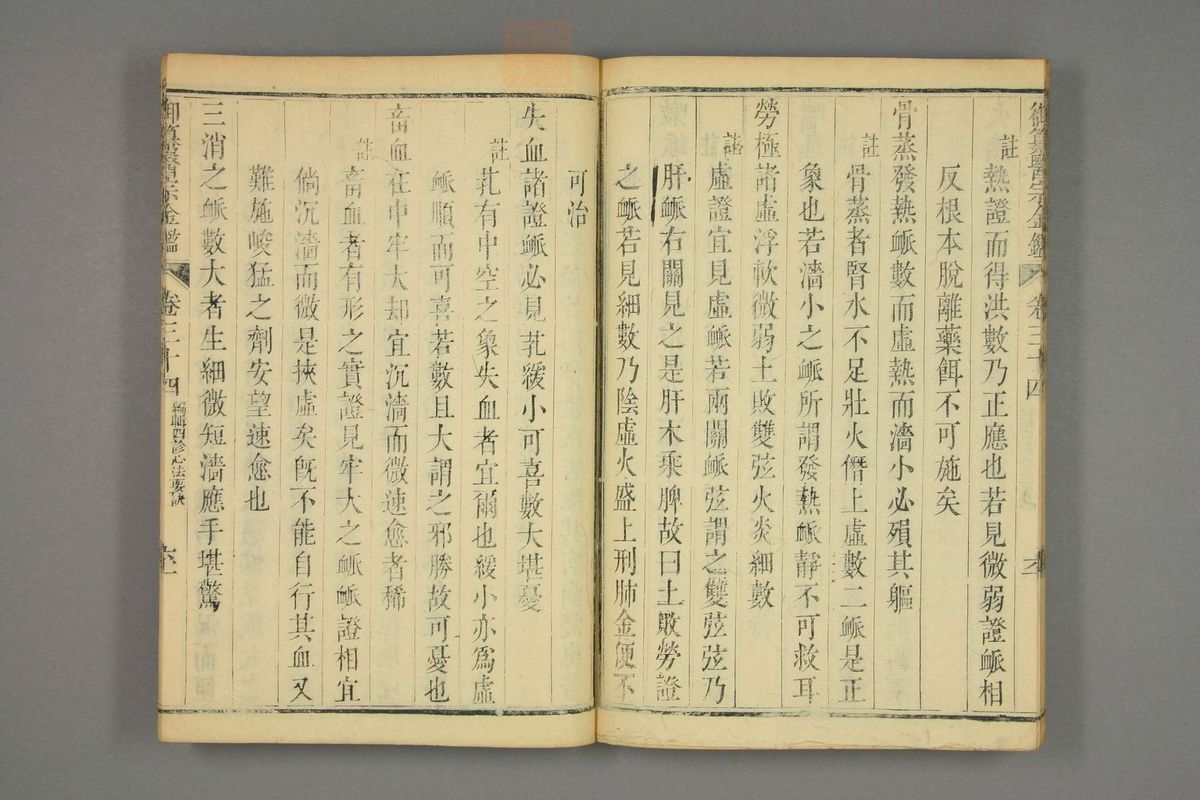 御纂醫宗金鑑 卷三十四
註熱證而得洪數乃正應也若見微弱證脈相
反根本脫離藥餌不可施矣
骨蒸發熱脈數而虛熱而濇小必殞其軀
註骨蒸者腎水不足壯火僭上虛數二脈是正
象也若濇小之脈所謂發熱脈靜不可救耳
勞極諸虛浮軟微弱土敗雙弦火炎細數
註虛證宜見虛脈若兩關脈弦謂之雙弦弦乃
肝脈右關見之是肝木乘脾故曰土敗勞證
之脈若見細數乃陰虛火盛上刑肺金便不
可治
失血諸證脈必見芤緩小可喜數大堪憂
註芤有中空之象失血者宜爾也緩小亦爲虛
脈順而可喜若數且大謂之邪勝故可憂也
畜血在中牢大却宜沉濇而微速愈者稀
註畜血者有形之實證見牢大之脈脈證相宜
倘沉濇而微是挾虛矣旣不能自行其血又
難施峻猛之劑安望速愈也
三消之脈數大者生細微短濇應手堪驚
御纂醫宗金鑑 卷三十四 編輯四診心法要訣